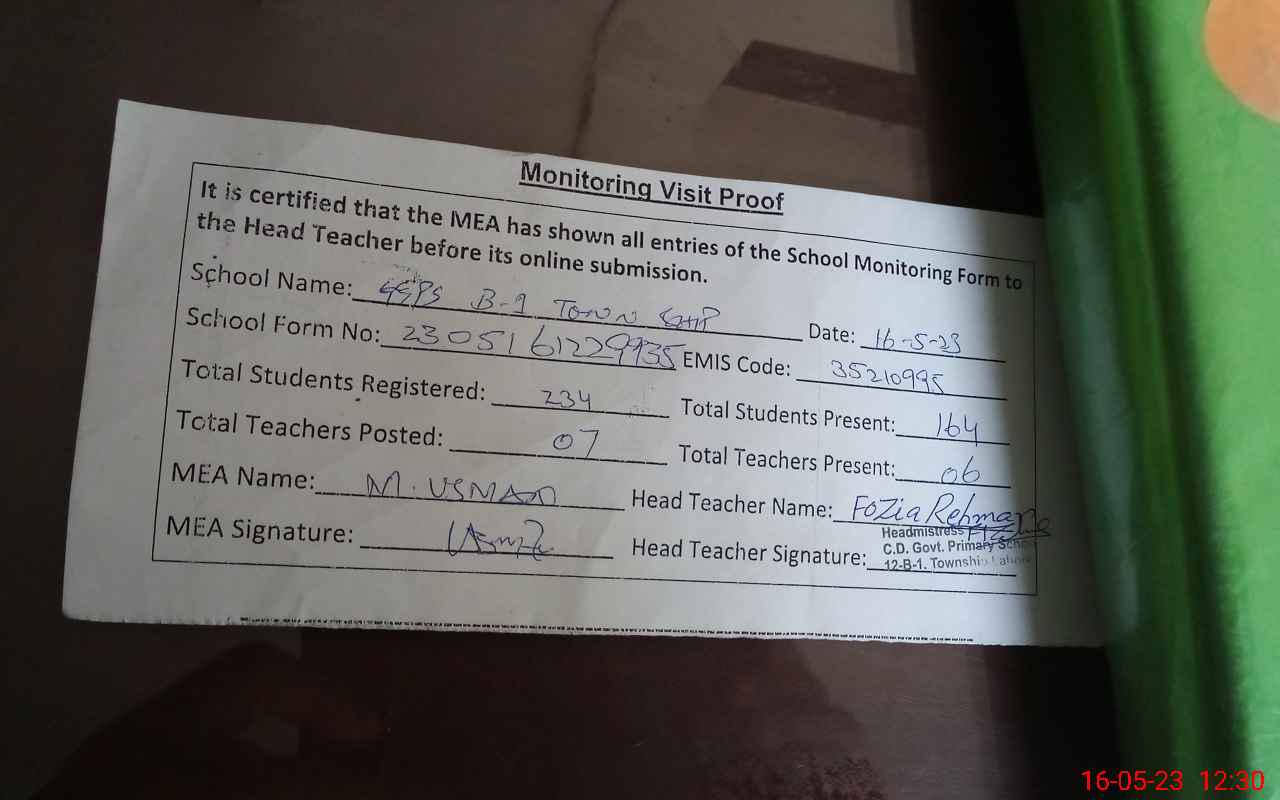 Monitoring Visit Proof
It is certified that the MEA has shown all entries of the School Monitoring Form to
the Head Teacher before its online submission.
School Name: GGPS B-1 TOWN SHIP Date: 16-5-23
School Form No: 2305161229935 EMIS Code: 35210995
Total Students Registered: 234 Total Students Present: 164
Total Teachers Posted: 07 Total Teachers Present: 06
MEA Name: M. USMAN Head Teacher Name: Fozia Rehmane
MEA Signature: Head Teacher Signature:
Headmistress
C.D. Govt. Primary School
12-B-1. Township Lahore
16-05-23 12:30